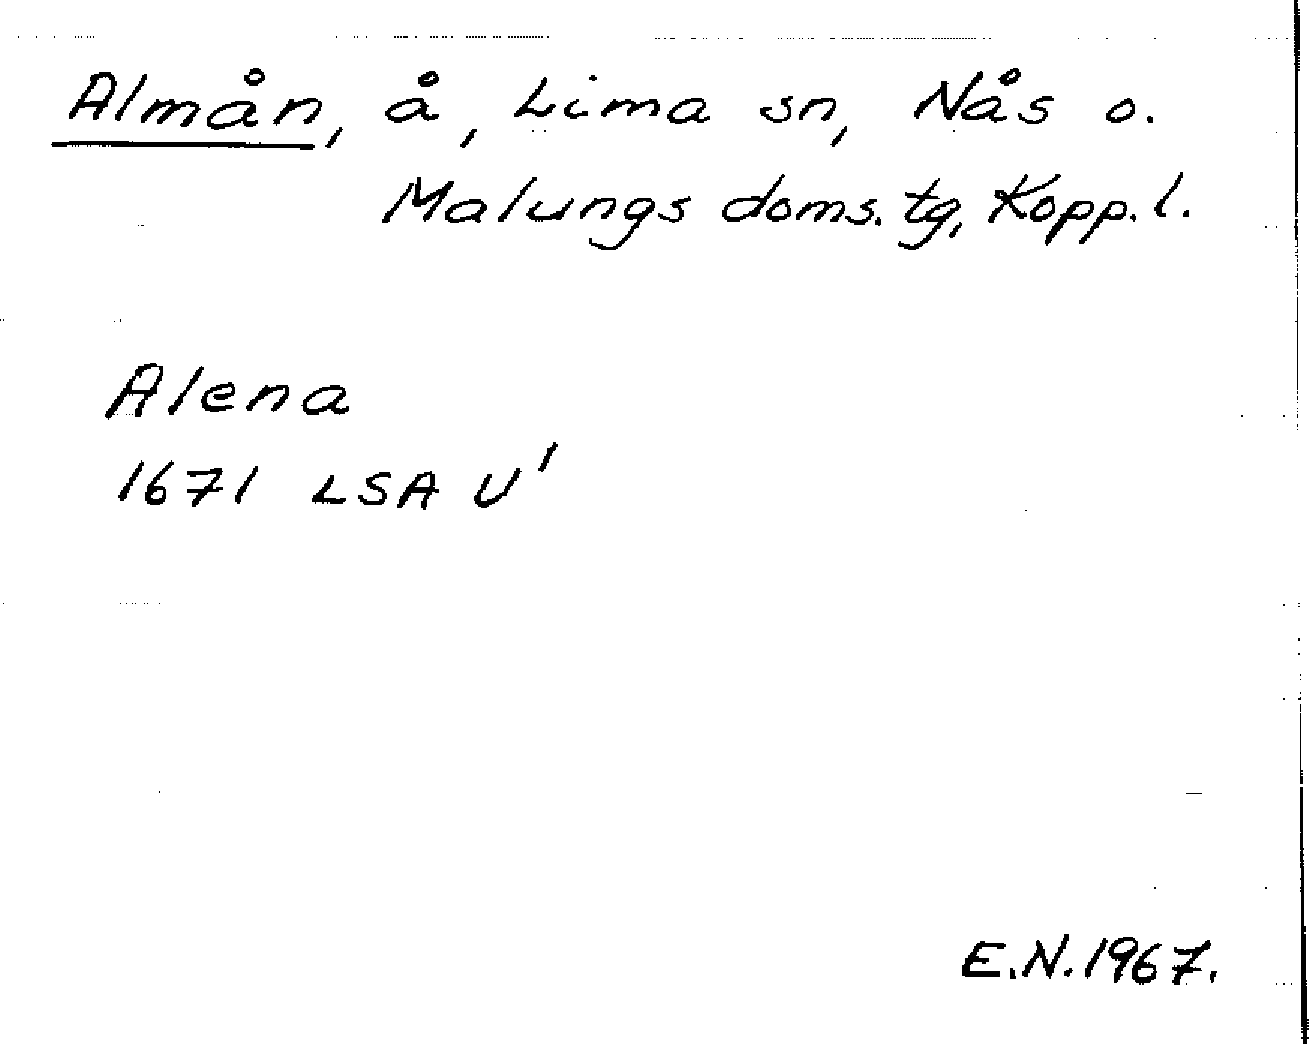 Almån, å, Lima sn, Nås o.
Malungs doms. tg, Kopp. l.
Alena
1671 LSA U'
E.N. 1967.